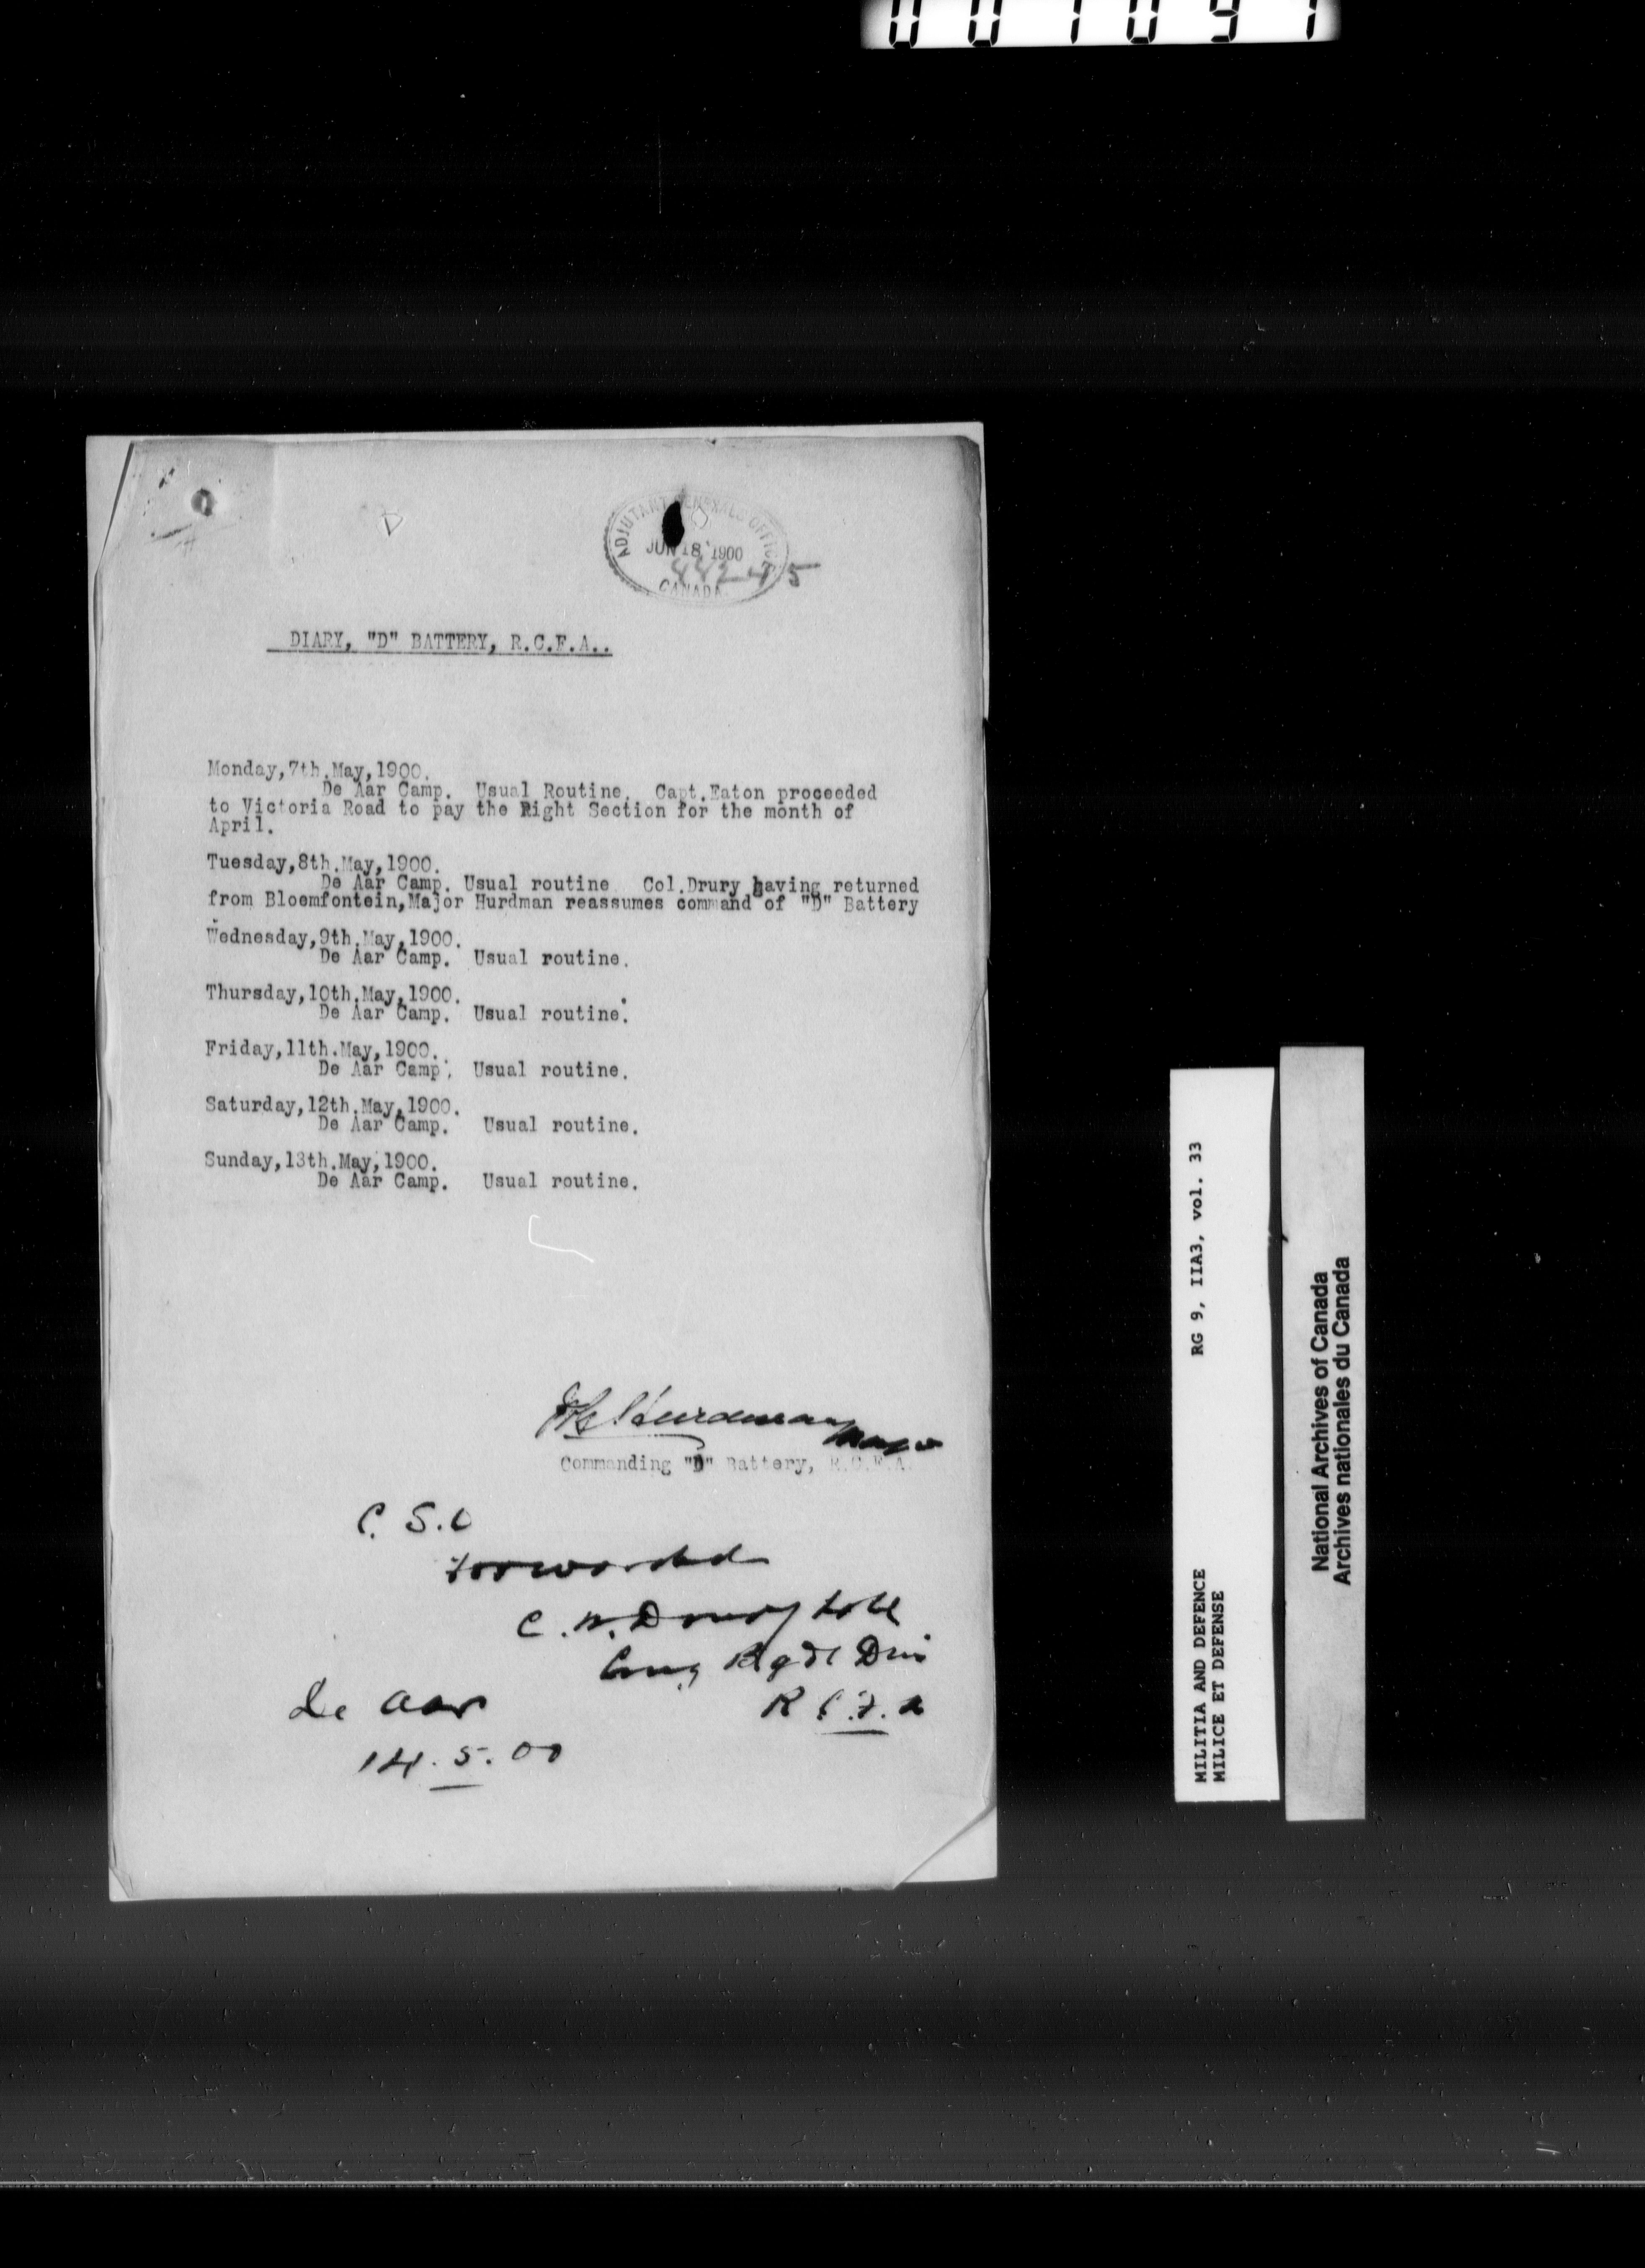 ADJUTANT GENERALS OFFICE
JUN 18 1900
44245
CANADA
DIARY, "D" BATTERY, R.C.F.A..
Monday,7th.May,1900.
De Aar Camp. Usual Routine. Capt.Eaton proceeded
to Victoria Road to pay the Right Section for the month of
April.
Tuesday,8th.May,1900.
De Aar Camp. Usual routine Col.Drury having returned
from Bloemfontein,Major Hurdman reassumes command of "D" Battery
.
Wednesday,9th.May,1900.
De Aar Camp. Usual routine.
Thursday,10th.May,1900.
De Aar Camp. Usual routine.
Friday,11th.May,1900.
De Aar Camp. Usual routine.
Saturday,12th.May,1900.
De Aar Camp. Usual routine.
Sunday,13th.May,1900.
De Aar Camp. Usual routine.
Hurdman Major
Commanding "D" Battery, R.C.F.A.
C. S. O
Forwarded
C. W. Drury
Bgde Divn
R C. F. A
De Aar
14. 5. 00
RG 9, IIA3, vol. 33
MILITIA AND DEFENCE
MILICE ET DEFENSE
National Archives of Canada
Archives nationales du Canada